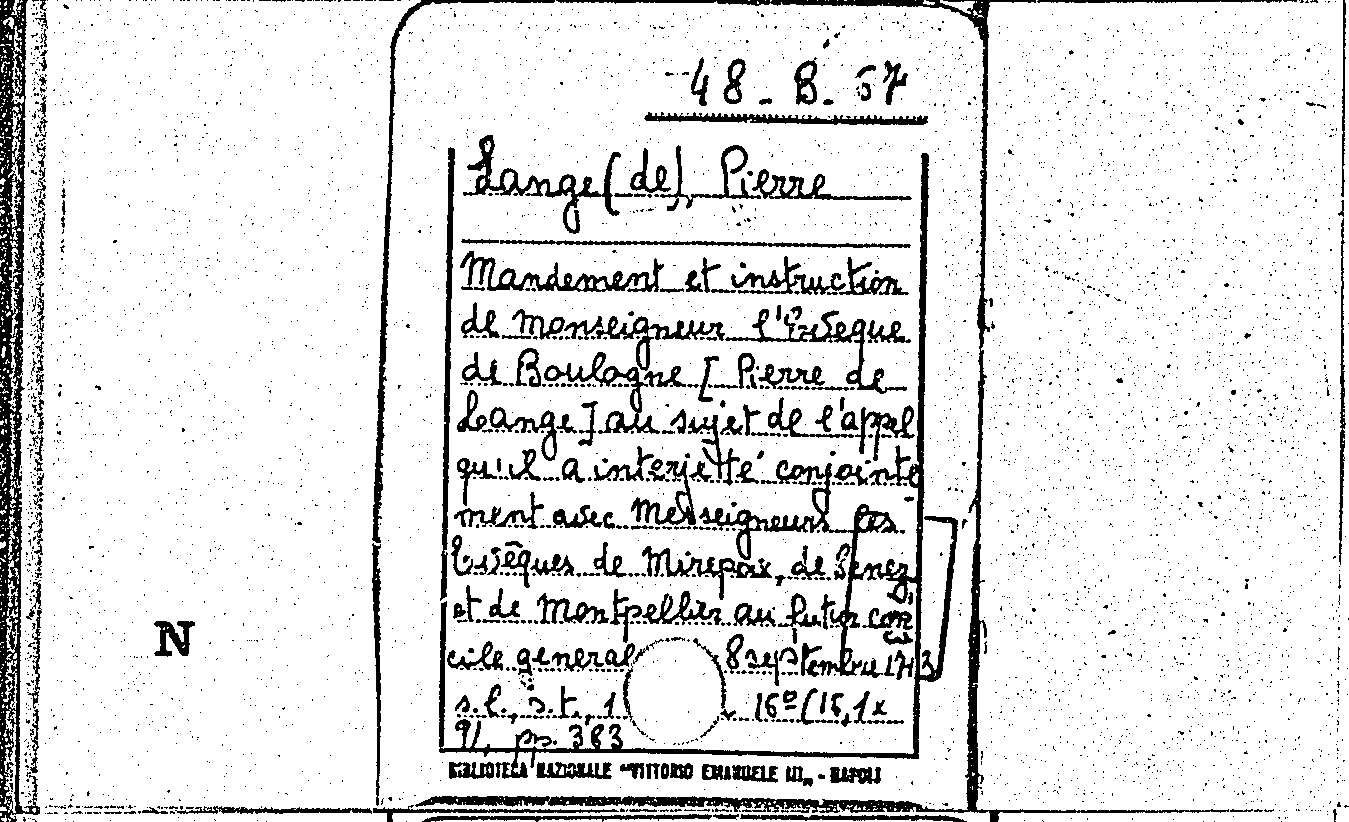 48-B. 57
Lange (de), Pierre
Mandement et instruction
de Monseigneur l'Evêque
de Boulogne [Pierre de
Lange] au sujet de l'appel
qu'il a interjetté conjointe-
ment avec Messeigneurs les
Evêques de Mirepoix, de Senez
et de Montpellier au futur con
cile general 8 septembre
s.l., s.t., 1 16º (16,1x
9), pp. 383
BIBLIOTECA NAZIONALE "VITTORIO EMANUELE III„ - NAPOLI
N